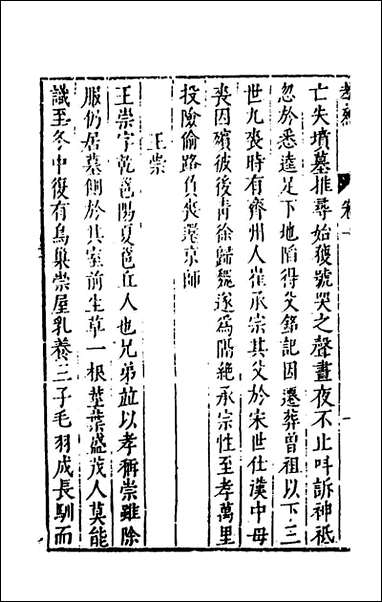 亡失墳墓推尋始獲號哭之聲晝夜不止呌訴神祗
忽於悉逵足下地䧟得父銘記因遷葬曽祖以下三
世九喪時有齊州人崔承宗其父於宋世仕漢中母
喪因殯彼後青徐歸魏遂爲隔絶承宗性至孝萬里
投險偷路負喪還京師
王崇
王崇字乾邕陽夏邕丘人也兄弟並以孝稱崇雖除
服仍居墓側於其室前生草一根莖葉盛茂人莫能
識至冬中復有鳥巢崇屋乳養三子毛羽成長馴而